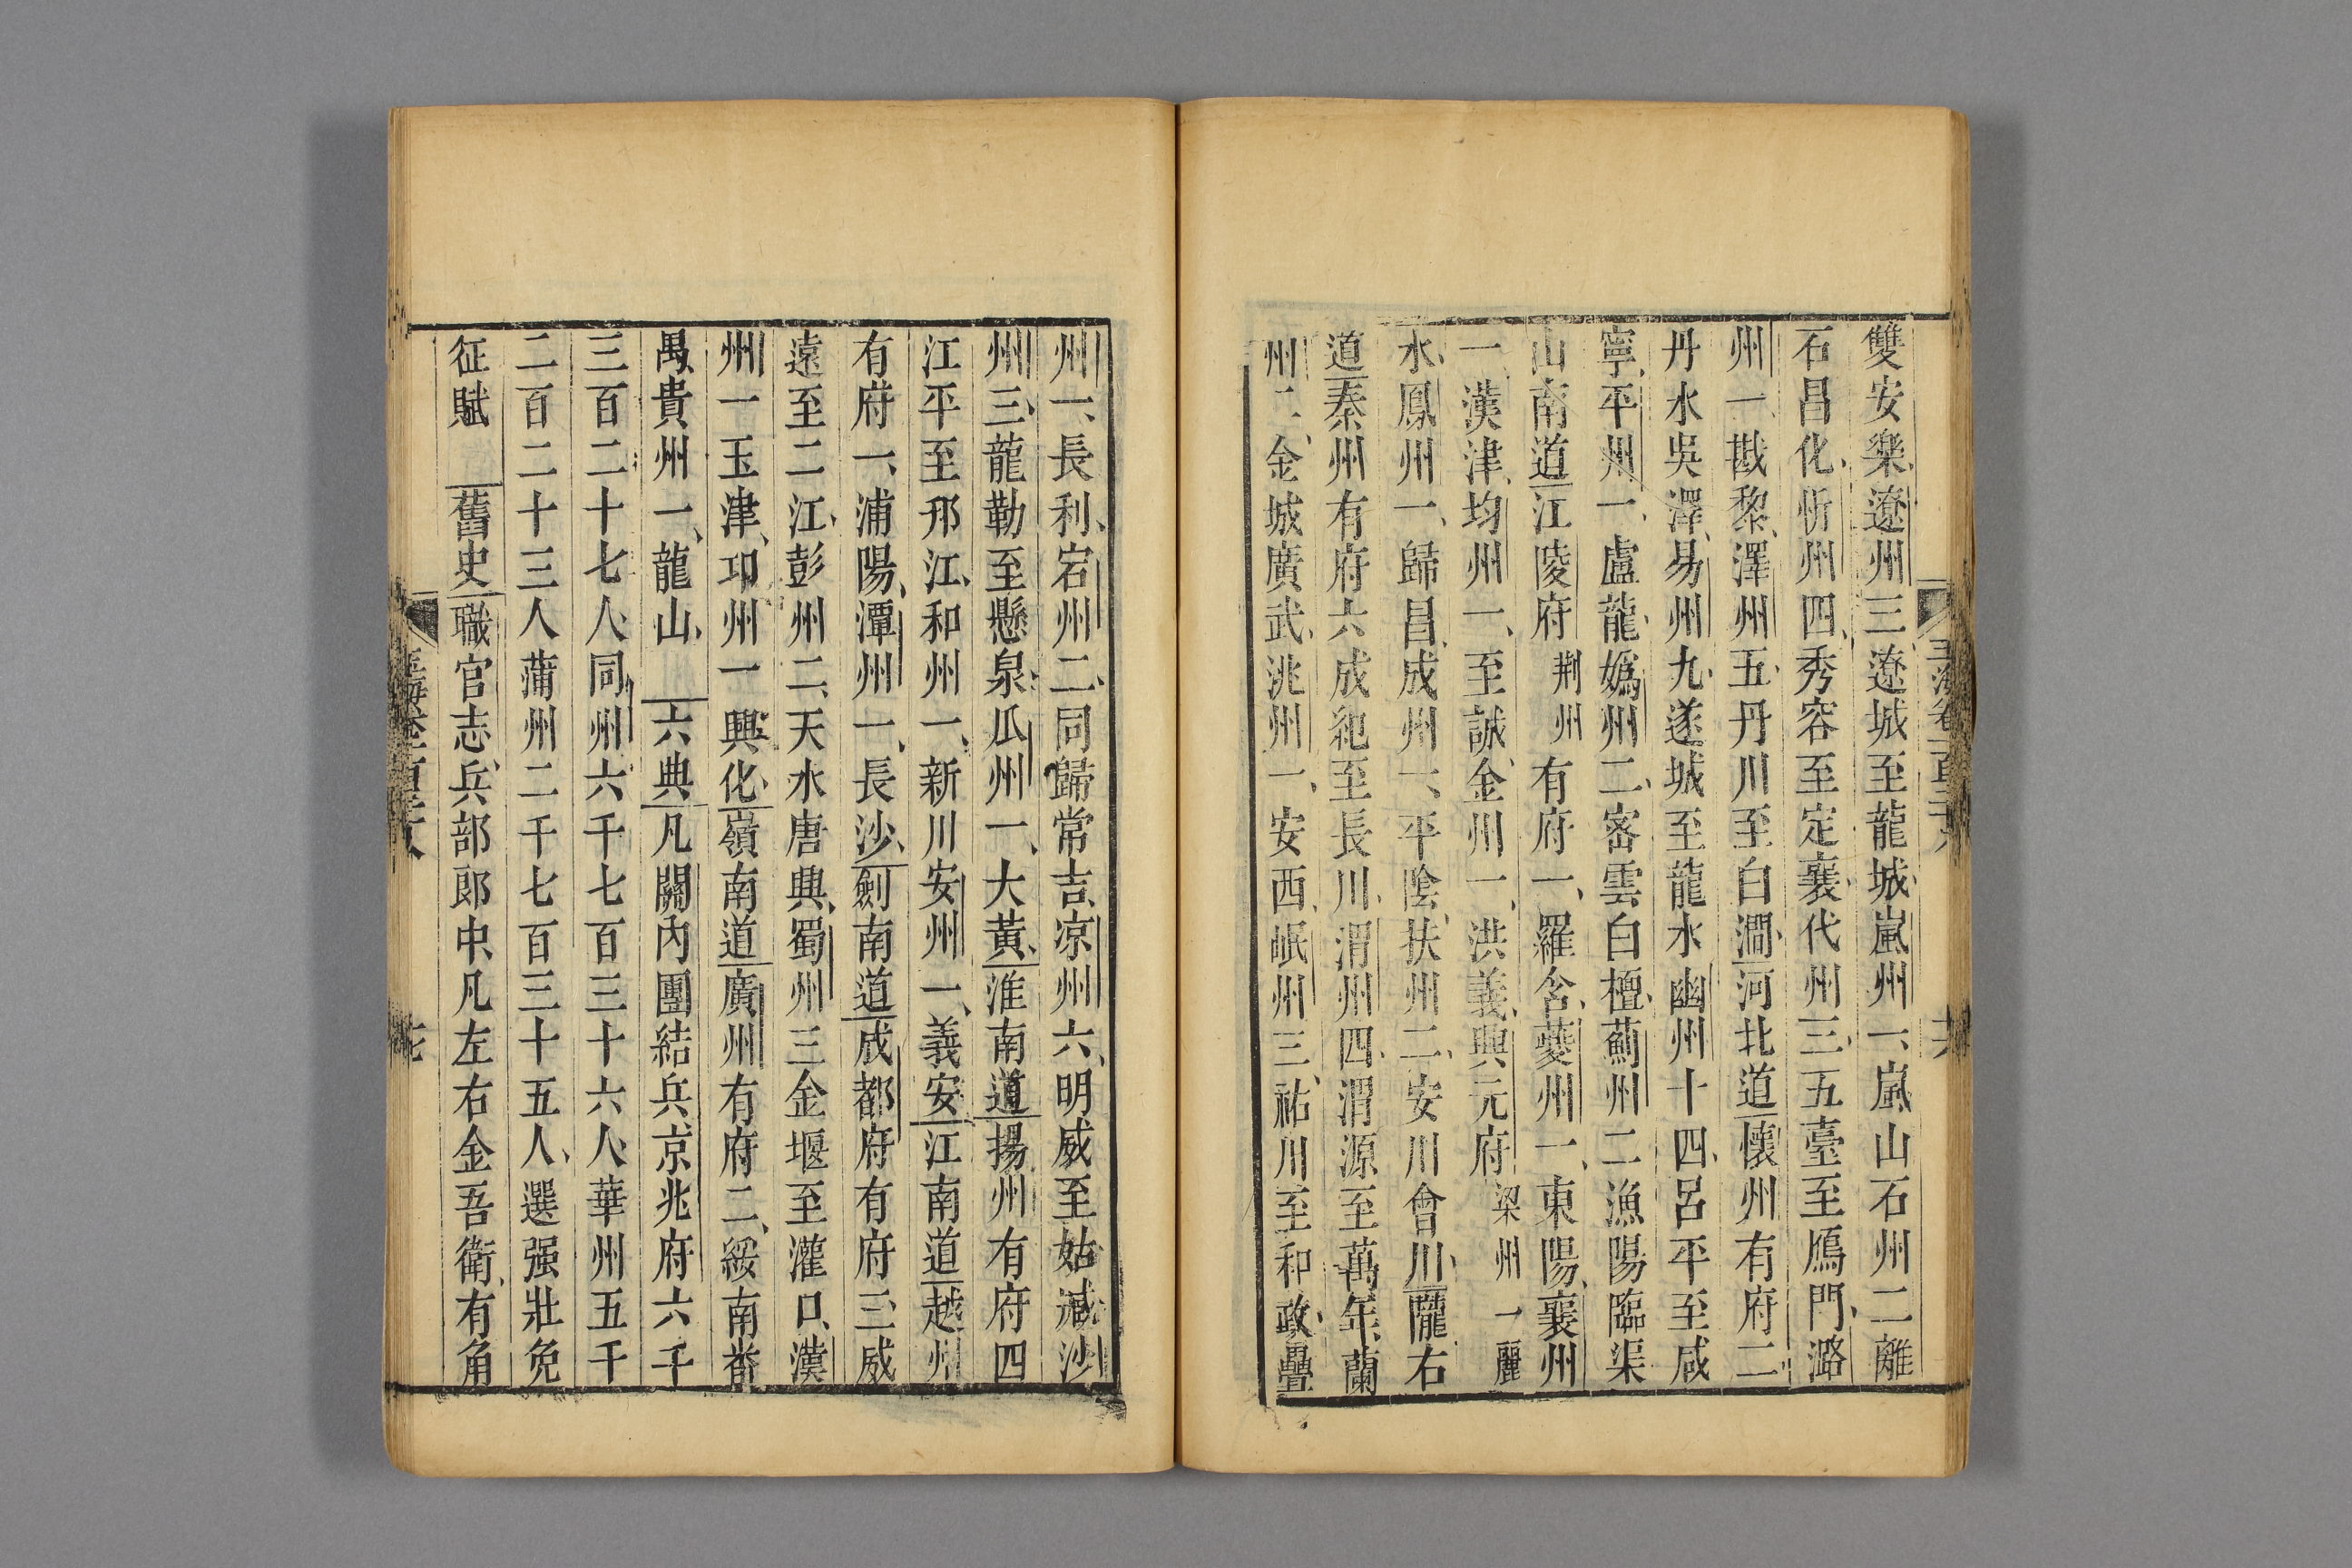 雙安樂遼州三遼城至龍城嵐州一嵐山石州二離
石昌化忻州四秀容至定襄代州三五臺至鴈門潞
州一戡黎澤州五丹川至白澗河北道懷州有府二
丹水吳澤易州九遂城至龍水幽州十四呂平至咸
寧平州一盧龍媯州二密雲白檀薊州二漁陽臨渠
山南道江陵府荆州有府一羅含夔州一東陽襄州
一漢津均州一至誠金州一洪義興元府梁州一麗
水鳳州一歸昌成州一平陰扶州二安川會川隴右
道秦州有府六成紀至長川渭州四渭源至萬年蘭
州二金城廣武洮州一安西岷州三祐川至和政疊
州一長利宕州二同歸常吉凉州六明威至姑臧沙
州三龍勒至懸泉瓜州一大黃淮南道揚州有府四
江平至邗江和州一新川安州一義安江南道越州
有府一浦陽潭州一長沙劍南道成都府有府三威
遠至二江彭州二天水唐興蜀州三金堰至灌口漢
州一玉津邛州一興化嶺南道廣州有府二綏南番
禺貴州一龍山 六典凡關內團結兵京兆府六千
三百二十七人同州六千七百三十六人華州五千
二百二十三人蒲州二千七百三十五人選强壯免
征賦 舊史職官志兵部郎中凡左右金吾衛有角